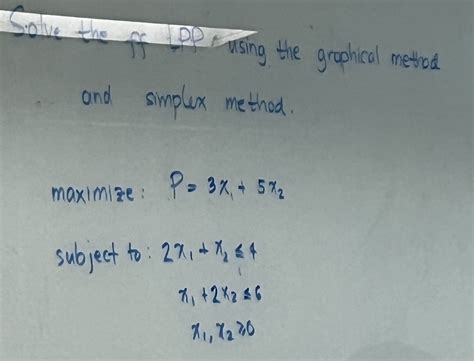 Solve the ff LPP using the graphical method
and simplex method.
maximize: P = 3x₁ + 5x₂
subject to: 2x₁ + x₂ ≤ 4
x₁ + 2x₂ ≤ 6
x₁, x₂ ≥ 0